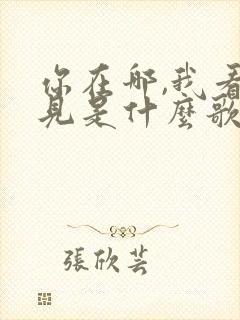 你在那,我看
见是什麼歌
張欣芸